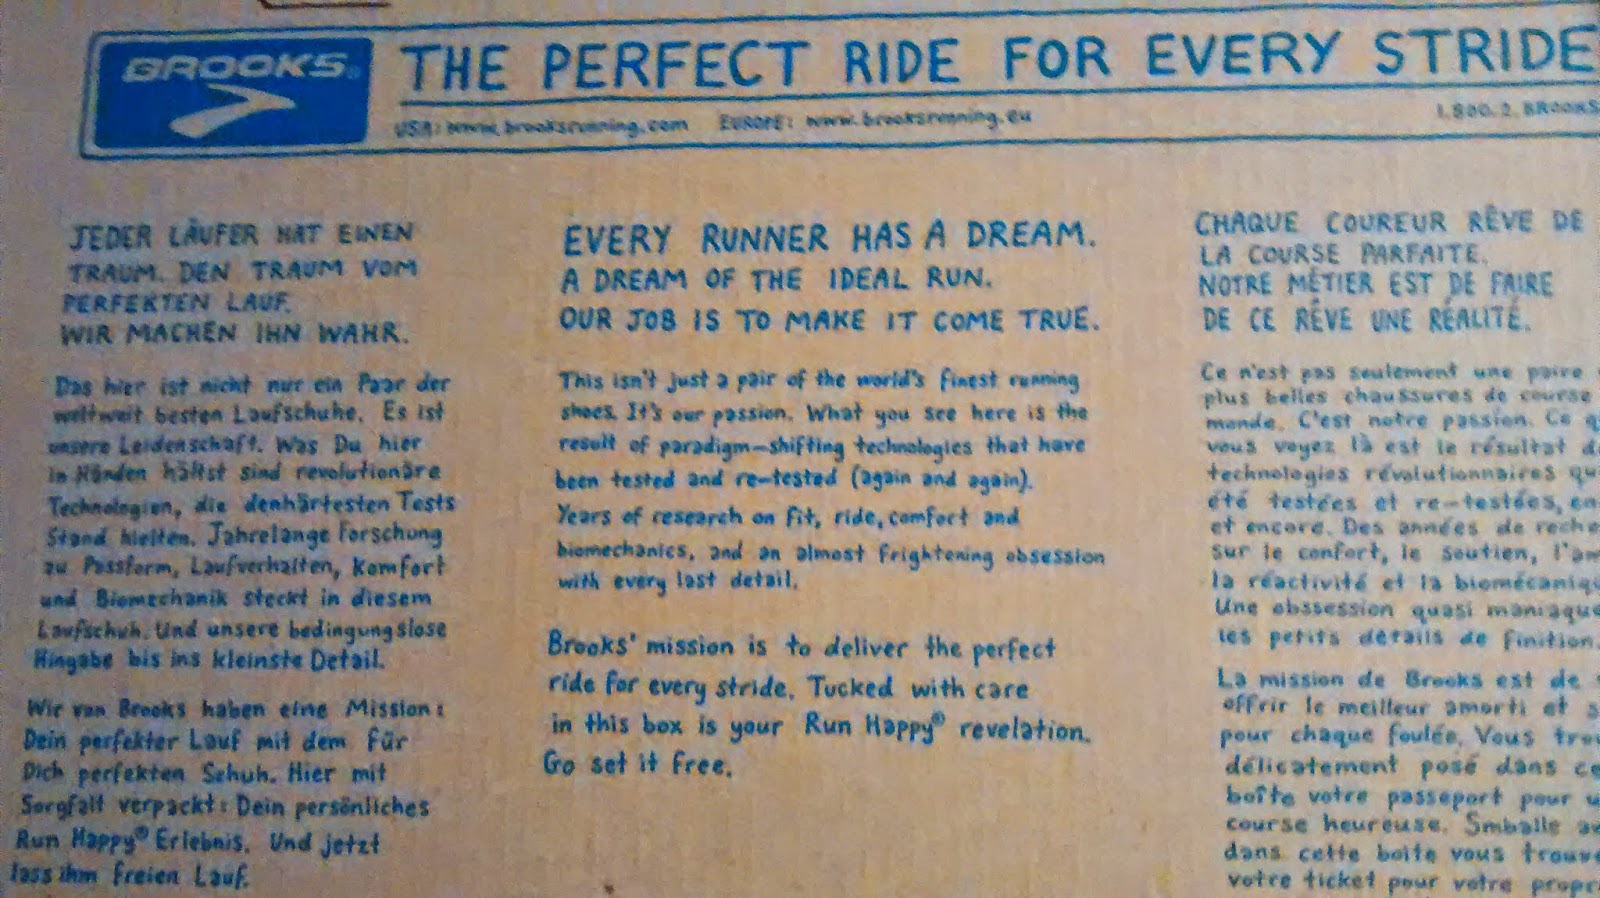 BROOKS®
THE PERFECT RIDE FOR EVERY STRIDE
USA: www.brooksrunning.com EUROPE: www.brooksrunning.eu
1.800.2.BROOKS
JEDER LÄUFER HAT EINEN
TRAUM. DEN TRAUM VOM
PERFEKTEN LAUF.
WIR MACHEN IHN WAHR.
Das hier ist nicht nur ein Paar der
weltweit besten Laufschuhe. Es ist
unsere Leidenschaft. Was Du hier
in Händen hältst sind revolutionäre
Technologien, die denhärtesten Tests
Stand hielten. Jahrelange Forschung
zu Passform, Laufverhalten, Komfort
und Biomechanik steckt in diesem
Laufschuh. Und unsere bedingungslose
Hingabe bis ins kleinste Detail.
Wir von Brooks haben eine Mission:
Dein perfekter Lauf mit dem für
Dich perfekten Schuh. Hier mit
Sorgfalt verpackt: Dein persönliches
Run Happy® Erlebnis. Und jetzt
lass ihm freien Lauf.
EVERY RUNNER HAS A DREAM.
A DREAM OF THE IDEAL RUN.
OUR JOB IS TO MAKE IT COME TRUE.
This isn't just a pair of the world's finest running
shoes. It's our passion. What you see here is the
result of paradigm-shifting technologies that have
been tested and re-tested (again and again).
Years of research on fit, ride, comfort and
biomechanics, and an almost frightening obsession
with every last detail.
Brooks' mission is to deliver the perfect
ride for every stride. Tucked with care
in this box is your Run Happy® revelation.
Go set it free.
CHAQUE COUREUR RÊVE DE
LA COURSE PARFAITE.
NOTRE MÉTIER EST DE FAIRE
DE CE RÊVE UNE RÉALITÉ.
Ce n'est pas seulement une paire
plus belles chaussures de course
monde. C'est notre passion. Ce
vous voyez là est le résultat
technologies révolutionnaires
été testées et re-testées,
et encore. Des années de
sur le confort, le soutien,
la réactivité et la
Une obssession quasi maniaque
les petits détails de finition.
La mission de Brooks est de
offrir le meilleur amorti et
pour chaque foulée. Vous
délicatement posé dans
boîte votre passeport pour
course heureuse. Smballe
dans cette boîte vous
votre ticket pour votre